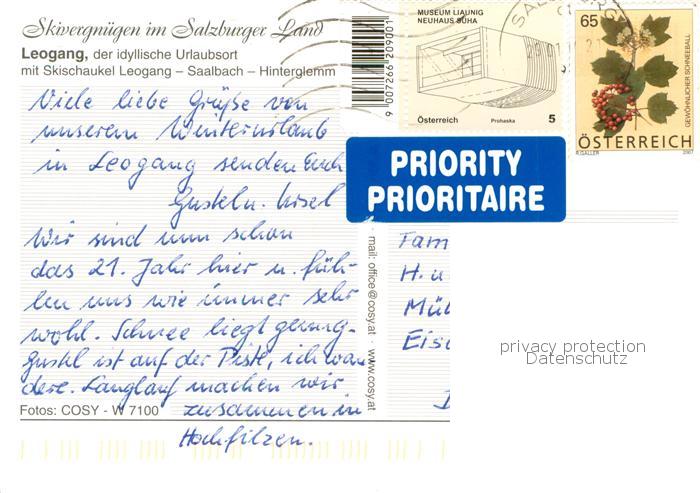 Skivergnügen im Salzburger Land
Leogang, der idyllische Urlaubsort
mit Skischaukel Leogang – Saalbach – Hinterglemm
Viele liebe Grüße von
unserem Winterurlaub
in Leogang senden Euch
Gustel u.
Wir sind nun schon
das 21. Jahr hier u. füh-
len uns wie immer sehr
wohl. Schnee liegt genug.
Gustl ist auf der Piste, ich wan
dere. Langlauf machen wir
zusammen in
Hochfilzen.
Fotos: COSY - W 7100
mail: office@cosy.at · www.cosy.at
9 007266 209001
MUSEUM LIAUNIG
NEUHAUS SUHA
Österreich
Prohaska
5
65
GEWÖHNLICHER SCHNEEBALL
ÖSTERREICH
B.GALLER
2007
PRIORITY
PRIORITAIRE
Fam
H. u
Mül
Eise
privacy protection
Datenschutz